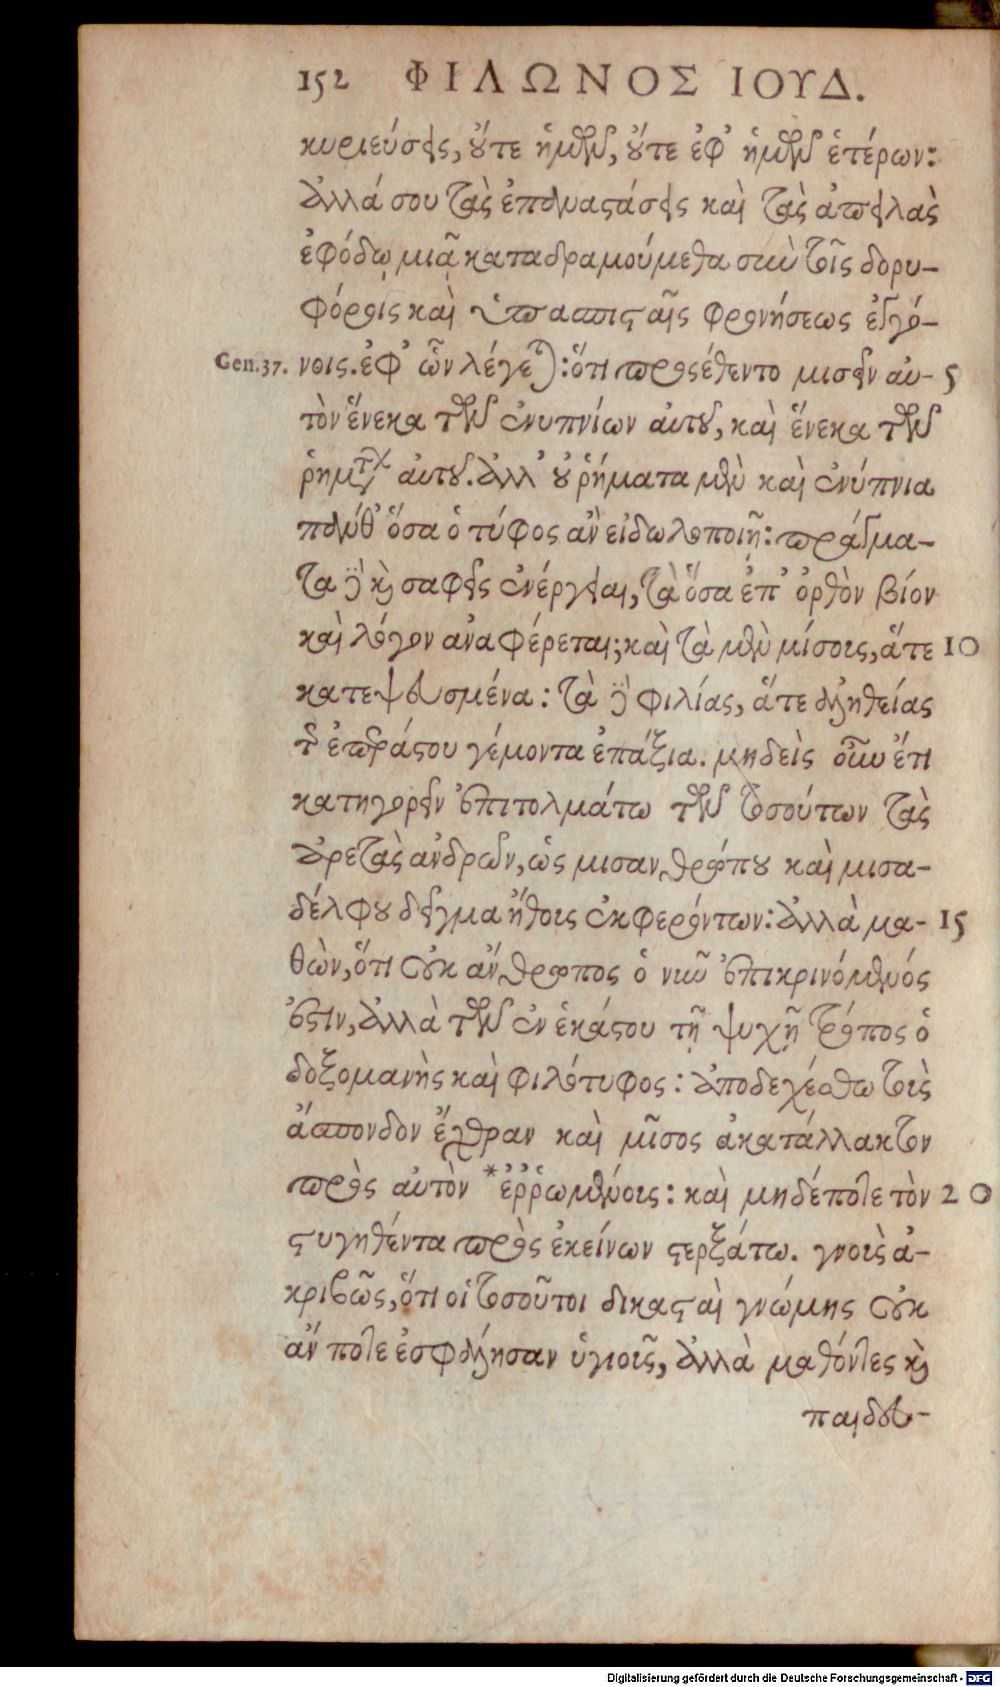 152 ΦΙΛΩΝΟΣ ΙΟΥΔ.
κυριεύσεις, οὔτε ἡμῶν, οὔτε ἐφ' ἡμῶν ἑτέρων:
ἀλλά σου τὰς ἐπαναστάσεις καὶ τὰς ἀπειλὰς
ἐφόδῳ μιᾷ καταδραμούμεθα σὺν τοῖς δορυ-
φόροις καὶ ὑπασπισταῖς φρονήσεως ἐγγό-
Gen. 37. νοις. ἐφ' ὧν λέγεται: ὅτι προσέθεντο μισεῖν αὐ- 5
τὸν ἕνεκα τῶν ἐνυπνίων αὐτοῦ, καὶ ἕνεκα τῶν
ῥημάτων αὐτοῦ. ἀλλ' οὐ ῥήματα μὲν καὶ ἐνύπνια
πάνθ' ὅσα ὁ τύφος ἂν εἰδωλοποιῇ: πράγμα-
τα δὲ καὶ σαφεῖς ἐνέργειαι, τὰ ὅσα ἐπ' ὀρθὸν βίον
καὶ λόγον ἀναφέρεται; καὶ τὰ μὲν μίσοις, ἅτε 10
κατεψευσμένα: τὰ δὲ φιλίας, ἅτε ἀληθείας
τῆς ἐπεράστου γέμοντα ἐπάξια. μηδεὶς οὖν ἔτι
κατηγορεῖν ἐπιτολμάτω τῶν τοσούτων τὰς
ἀρετὰς ἀνδρῶν, ὡς μισανθρώπου καὶ μισα-
δέλφου δεῖγμα ἤθοις ἐκφερόντων: ἀλλὰ μα- 15
θὼν, ὅτι οὐκ ἄνθρωπος ὁ νῦν ἐπικρινόμενός
ἐστιν, ἀλλὰ τῶν ἐν ἑκάστου τῇ ψυχῇ τρόπος ὁ
δοξομανὴς καὶ φιλότυφος: ἀποδεχέσθω τοὶς
ἄσπονδον ἔχθραν καὶ μῖσος ἀκατάλλακτον
πρὸς αὐτὸν *ἐῤῥωμένοις: καὶ μηδέποτε τὸν 20
στυγηθέντα πρὸς ἐκείνων στερξάτω. γνοὶς ἀ-
κριβῶς, ὅτι οἱ τοσοῦτοι δικασταὶ γνώμης οὐκ
ἄν ποτε ἐσφάλησαν ὑγιοῖς, ἀλλὰ μαθόντες καὶ
παιδευ-
Digitalisierung gefördert durch die Deutsche Forschungsgemeinschaft - DFG